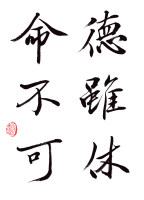 德雖休
命不可